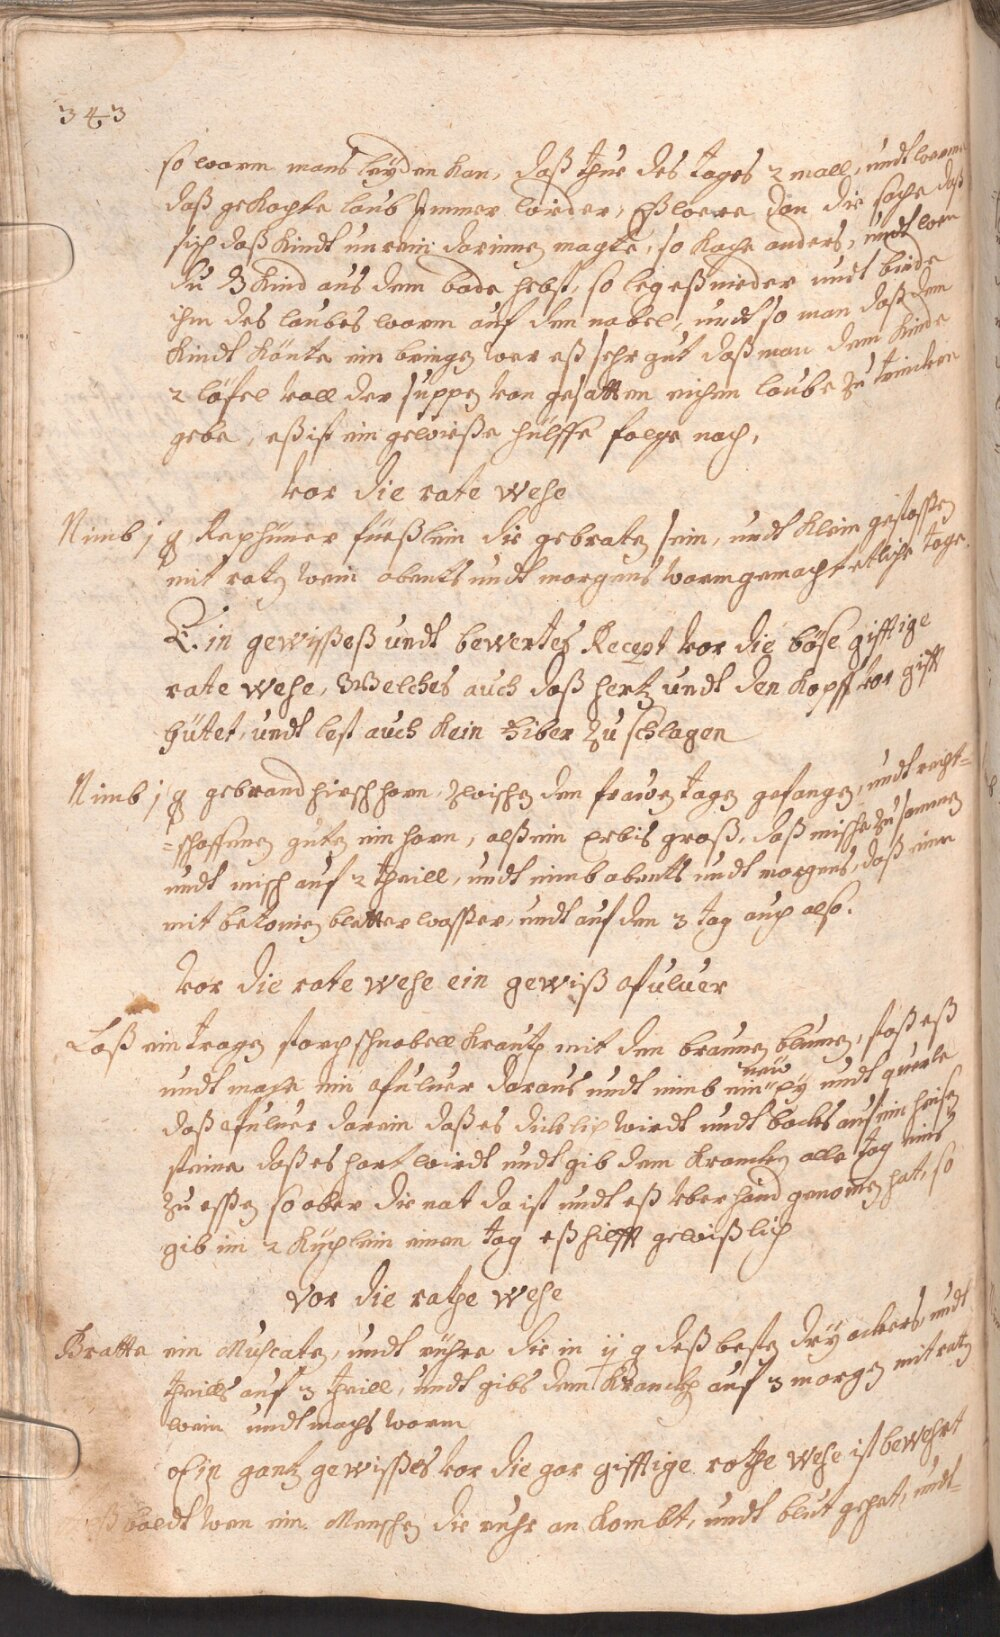 343
so warm mans leyden kan, daß thue des tages 2 mall, undt warme
daß gekochte laub immer wieder, Eß were dan die sache daß
sich daß Kindt unrein darinnen machte, so koche anders, undt wen
du ds Kind aus dem bade hebst, so leg eß nieder undt binde
ihm des laubes warm auf den nabel, undt so man daß dem
Kindt könte ein bringen wer eß sehr gut daß man dem Kinde
2 löfel voll der suppen von gesotten eichen laube zu trincken
gebe, eß ist ein gewieße hülffe folge nach,
vor die rote wehe
Nimb j q Rephüner füeßlein die gebraten sein, undt klein gestoßen
mit roten wein abents undt morgens warm gemacht etliche tage.
Ein gewißeß undt bewertes Recept vor die böse gifftige
rote wehe, Welches auch daß hertz undt den Kopff vor gifft
hütet, undt lest auch kein Fiber zu schlagen
Nimb j q gebrand hirschhorn, zwischen den frawen tagen gefangen, undt recht=
=schaffenen guten ein horn, alß ein erbis groß, daß mische zu samen
undt misch auf 2 theill, undt nimb abents undt morgens, daß eine
mit betonien bletter waßer, undt auf den 3 tag auch also.
vor die rote wehe ein gewiß pfuluer
Laß ein tragen storchschnabell kraut mit den braunen blumen, stoß eß
undt mache ein pfuluer daraus undt nimb ein new ey undt querle
daß pfuluer darein daß es dicklich wirdt undt backs auf ein heisen
steine daß es hart wirdt undt gib dem krancken alle tag eins
zu essen so aber die nat da ist undt eß vberhand genomen hat, so
gib im 2 küchlein einen tag eß hilfft gewißlich
Vor die rothe wehe
Bratte ein Muscaten, undt rühre die in ij q deß besten dryackers, undt
theills auf 3 theill, undt gibs dem krancken auf 3 morgen mit roten
wein undt machs warm
Ein gantz gewißes vor die gar gifftige rothe wehe ist bewehrt
baldt wen ein Menschen die ruhr an kombt, undt blut gehet, undt=